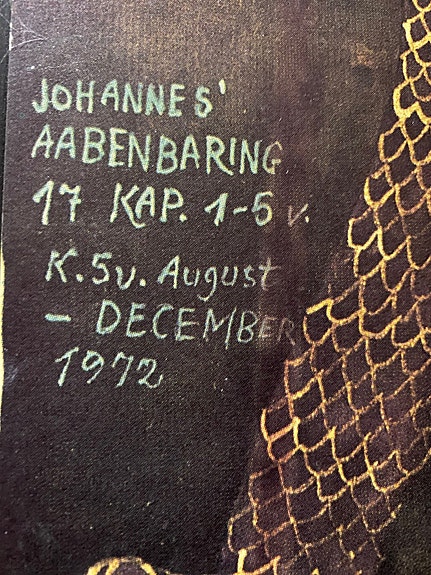 JOHANNES'
AABENBARING
17 KAP. 1-5 v.
K.Sv. August
- DECEMBER
1972